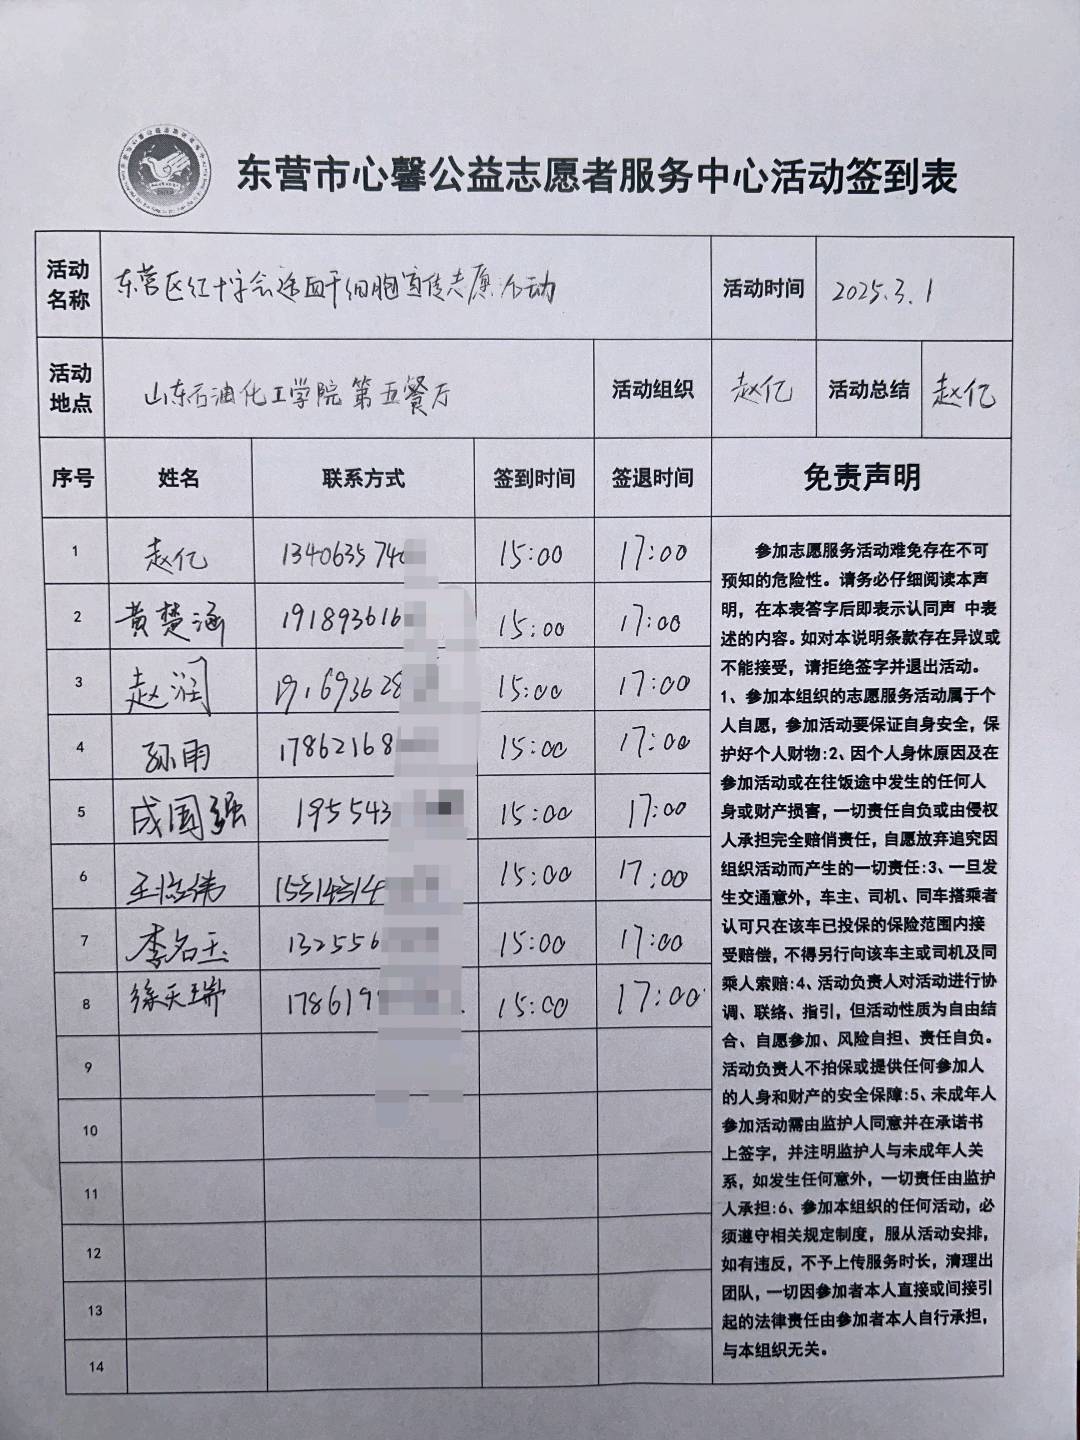 东营市心馨公益志愿者服务中心活动签到表
活动名称 东营区红十字会造血干细胞宣传志愿活动 活动时间 2025.3.1
活动地点 山东石油化工学院第五餐厅 活动组织 赵亿 活动总结 赵亿
序号 姓名 联系方式 签到时间 签退时间 免责声明
1 赵亿 1340635740 15:00 17:00
2 黄楚涵 191893616 15:00 17:00
3 赵润 191693628 15:00 17:00
4 孙雨 17862168 15:00 17:00
5 成国强 195543 15:00 17:00
6 15:00 17:00
7 李名玉 132556 15:00 17:00
8 徐天瑞 178619 15:00 17:00
9
10
11
12
13
14
参加志愿服务活动难免存在不可
预知的危险性。请务必仔细阅读本声
明，在本表答字后即表示认同声 中表
述的内容。如对本说明条款存在异议或
不能接受，请拒绝签字并退出活动。
1、参加本组织的志愿服务活动属于个
人自愿，参加活动要保证自身安全，保
护好个人财物:2、因个人身休原因及在
参加活动或在往饭途中发生的任何人
身或财产损害，一切责任自负或由侵权
人承担完全赔俏责任，自愿放弃追究因
组织活动而产生的一切责任:3、一旦发
生交通意外，车主、司机、同车搭乘者
认可只在该车已投保的保险范围内接
受赔偿，不得另行向该车主或司机及同
乘人索赔:4、活动负责人对活动进行协
调、联络、指引，但活动性质为自由结
合、自愿参加、风险自担、责任自负。
活动负责人不拍保或提供任何参加人
的人身和财产的安全保障:5、未成年人
参加活动需由监护人同意并在承诺书
上签字，并注明监护人与未成年人关
系，如发生任何意外，一切责任由监护
人承担:6、参加本组织的任何活动，必
须遵守相关规定制度，服从活动安排，
如有违反，不予上传服务时长，清理出
团队，一切因参加者本人直接或间接引
起的法律责任由参加者本人自行承担，
与本组织无关。